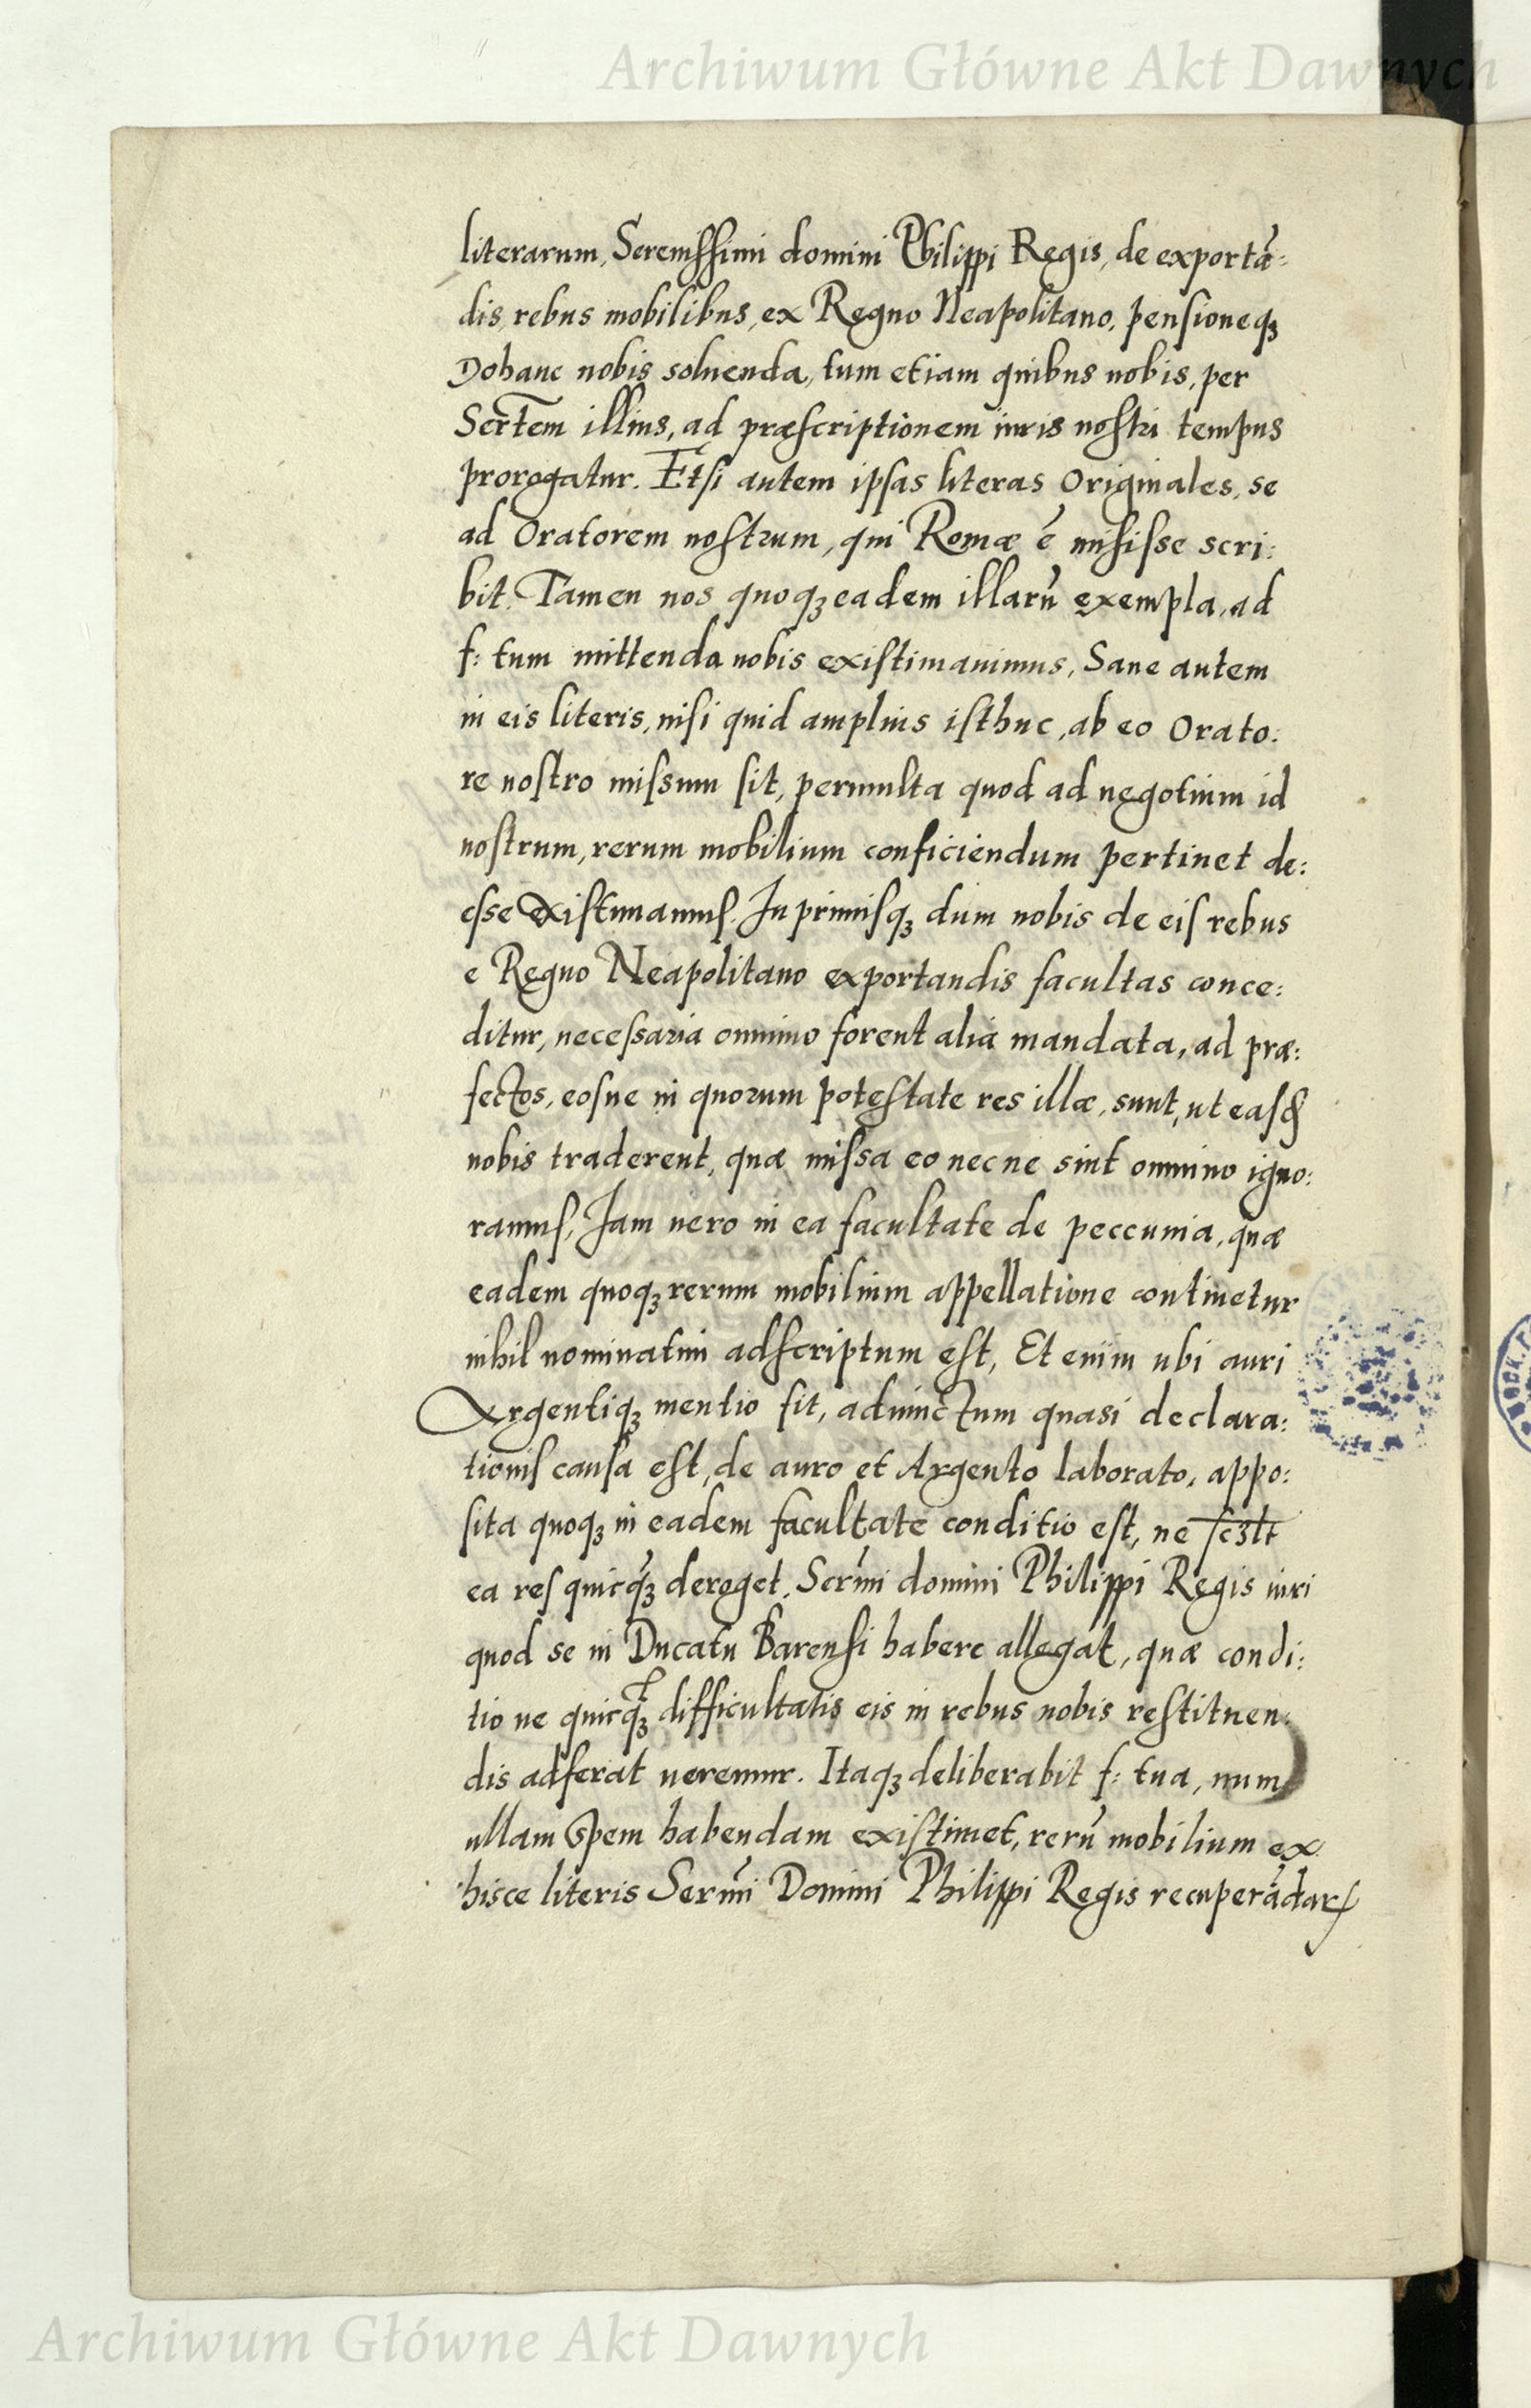 Archiwum Główne Akt Dawnych
literarum, Serenissimi domini Philippi Regis, de exportā:
dis, rebus mobilibus, ex Regno Neapolitano, pensioneqꝫ
Dohane nobis soluenda, tum etiam quibus nobis, per
Sertem illius, ad præscriptionem iuris nostri tempus
prorogatur. Etsi autem ipsas literas Originales, se
ad Oratorem nostrum, qui Romæ ē misisse scri:
bit. Tamen nos quoqꝫ eadem illarū exempla, ad
f: tum mittenda nobis existimauimus, Sane autem
in eis literis, nisi quid amplius isthuc, ab eo Orato:
re nostro missum sit, permulta quod ad negotium id
nostrum, rerum mobilium conficiendum pertinet de:
esse existimamus. In primisqꝫ dum nobis de eis rebus
e Regno Neapolitano exportandis facultas conce:
ditur, necessaria omnino forent alia mandata, ad præ:
fectos, eosue in quorum potestate res illæ, sunt, ut easdem
nobis traderent, quæ missa eo necne sint omnino igno:
ramus, Iam uero in ea facultate de peccunia, quæ
eadem quoqꝫ rerum mobilium appellatione continetur
nihil nominatim adscriptum est, Et enim ubi auri
Argentiqꝫ mentio fit, adiunctum quasi declara:
tionis causa est, de auro et Argento laborato, appo:
sita quoqꝫ in eadem facultate conditio est, ne sczlt
ea res quicqꝫ deroget. Sermi domini Philippi Regis iuri
quod se in Ducatu Barensi habere allegat, quæ condi:
tio ne quicqꝫ difficultatis eis in rebus nobis restituen:
dis adferat ueremur. Itaqꝫ deliberabit f: tua, num
ullam spem habendam existimet, rerū mobilium ex
hisce literis Sermi Domini Philippi Regis recuperādarꝝ
Archiwum Główne Akt Dawnych